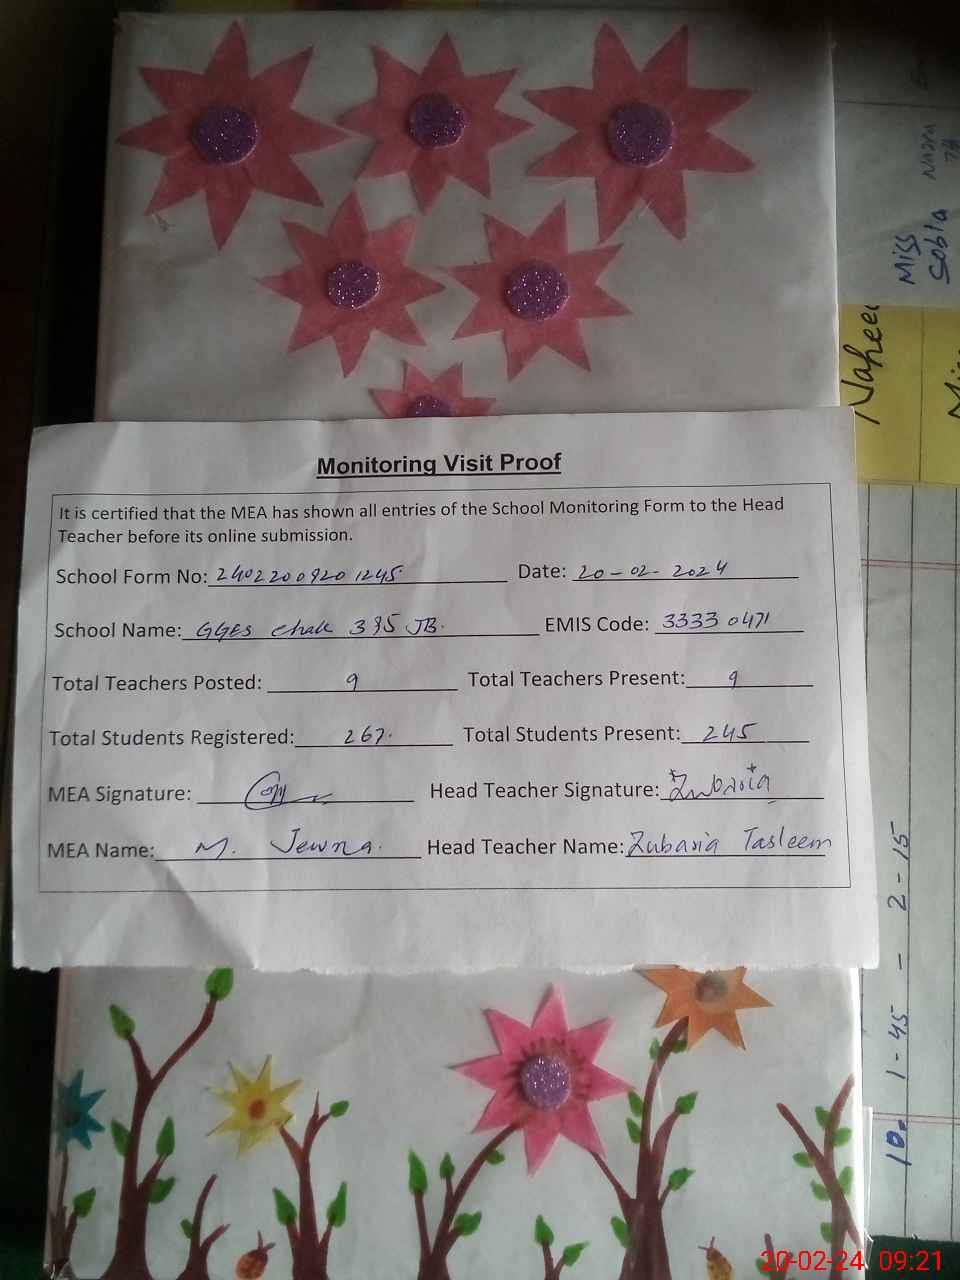 Monitoring Visit Proof
It is certified that the MEA has shown all entries of the School Monitoring Form to the Head
Teacher before its online submission.
School Form No: 24022009201245 Date: 20-02-2024
School Name: GGES Chak 395 JB. EMIS Code: 33330471
Total Teachers Posted: 9 Total Teachers Present: 9
Total Students Registered: 267. Total Students Present: 245
MEA Signature: Head Teacher Signature: Zubaria
MEA Name: M. Head Teacher Name: Zubaria Tasleem
Miss
Sobia
10. 1-45 - 2-15
20-02-24 09:21